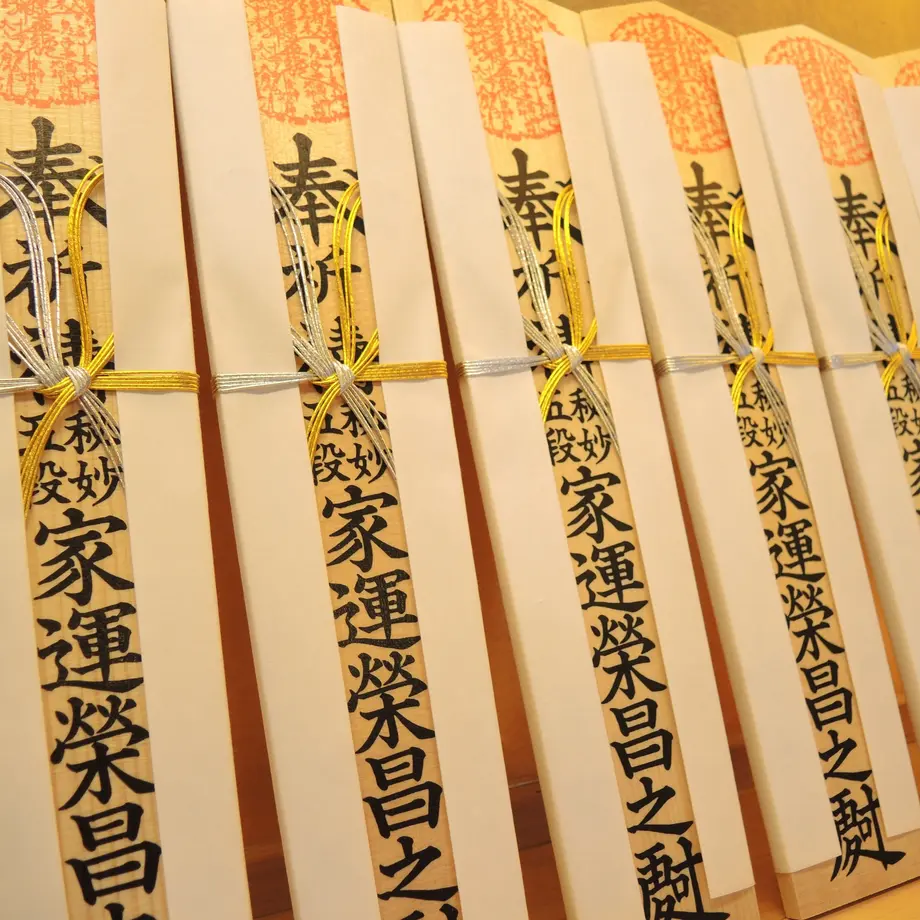 奉祈
秘妙
五段
家運榮昌
奉祈
秘妙
五段
家運榮昌之
奉祈
秘妙
五段
家運榮昌之
奉祈
秘妙
五段
家運榮昌之
奉祈